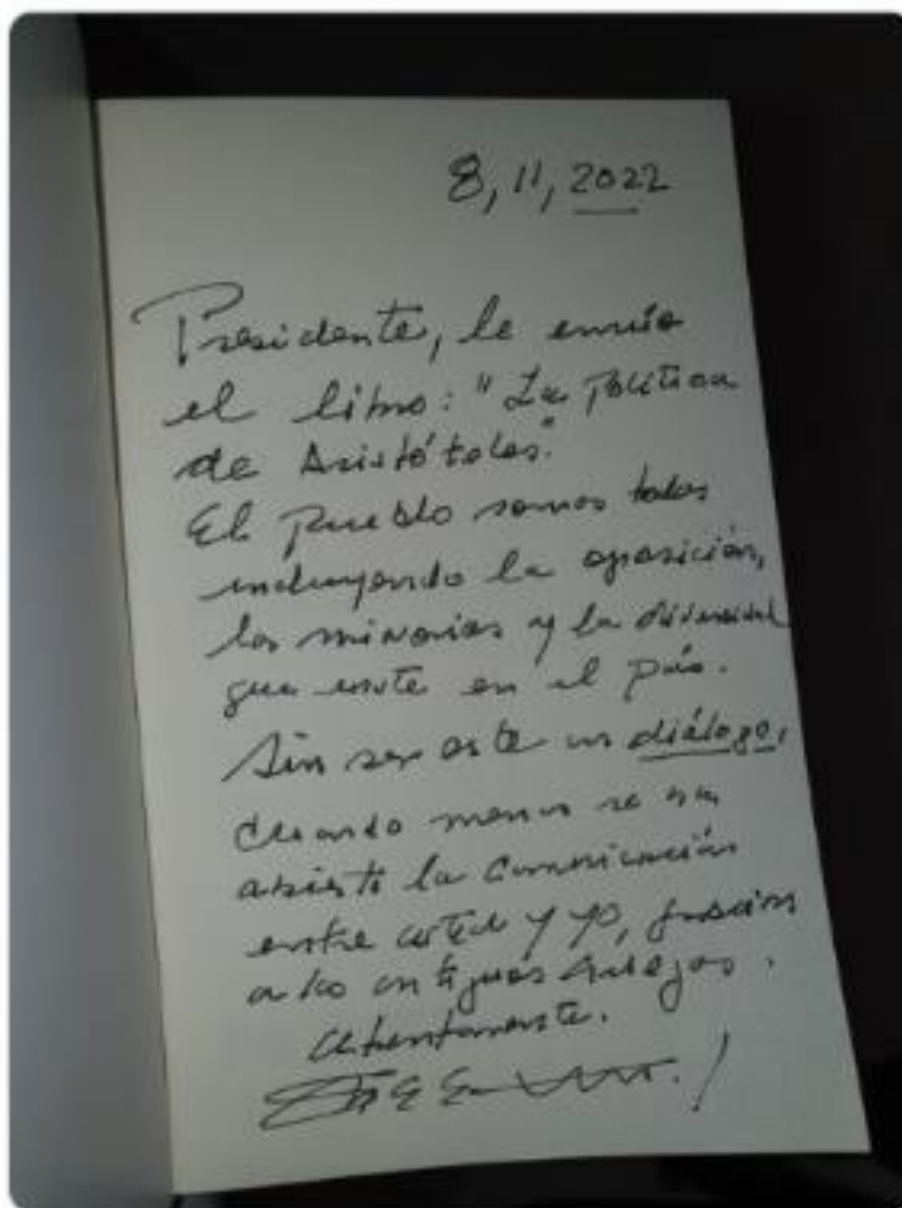 8, 11, 2022
Presidente, le envío
el libro: "La Política
de Aristóteles".
El pueblo somos todos
incluyendo la oposición,
las minorías y la diversidad
que existe en el país.
Sin ser este un diálogo,
cuando menos se ha
abierto la comunicación
entre usted y yo, gracias
a los antiguos griegos.
Atentamente.